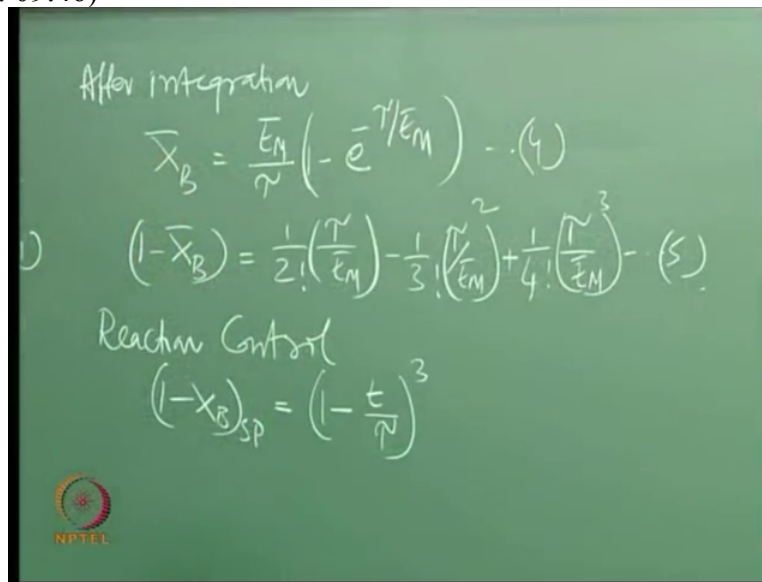 After integration
X̄_B = t̄_M/τ (1 - e^{-τ/t̄_M}) -- (4)
1) (1-X̄_B) = 1/2! (τ/t̄_M) - 1/3! (τ/t̄_M)^2 + 1/4! (τ/t̄_M)^3 -- (5)
Reaction Control
(1-X_B)_{SP} = (1 - t/τ)^3
NPTEL